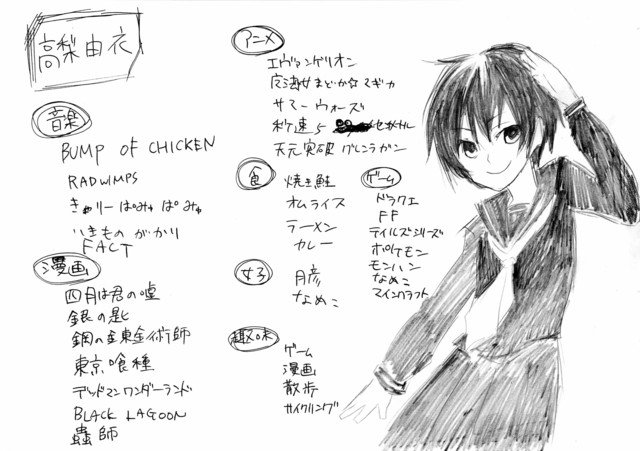 高梨由衣
音楽
BUMP OF CHICKEN
RADWIMPS
きゃりーぱみゅぱみゅ
いきものがかり
FACT
漫画
四月は君の嘘
銀の匙
鋼の錬金術師
東京喰種
デッドマンワンダーランド
BLACK LAGOON
蟲師
アニメ
エヴァンゲリオン
魔法少女まどか☆マギカ
サマーウォーズ
秒速5 センチメートル
天元突破 グレンラガン
食
焼き鮭
オムライス
ラーメン
カレー
女子
月彦
なめこ
趣味
ゲーム
漫画
散歩
サイクリング
ゲーム
ドラクエ
FF
テイルズシリーズ
ポケモン
モンハン
なめこ
マインクラフト